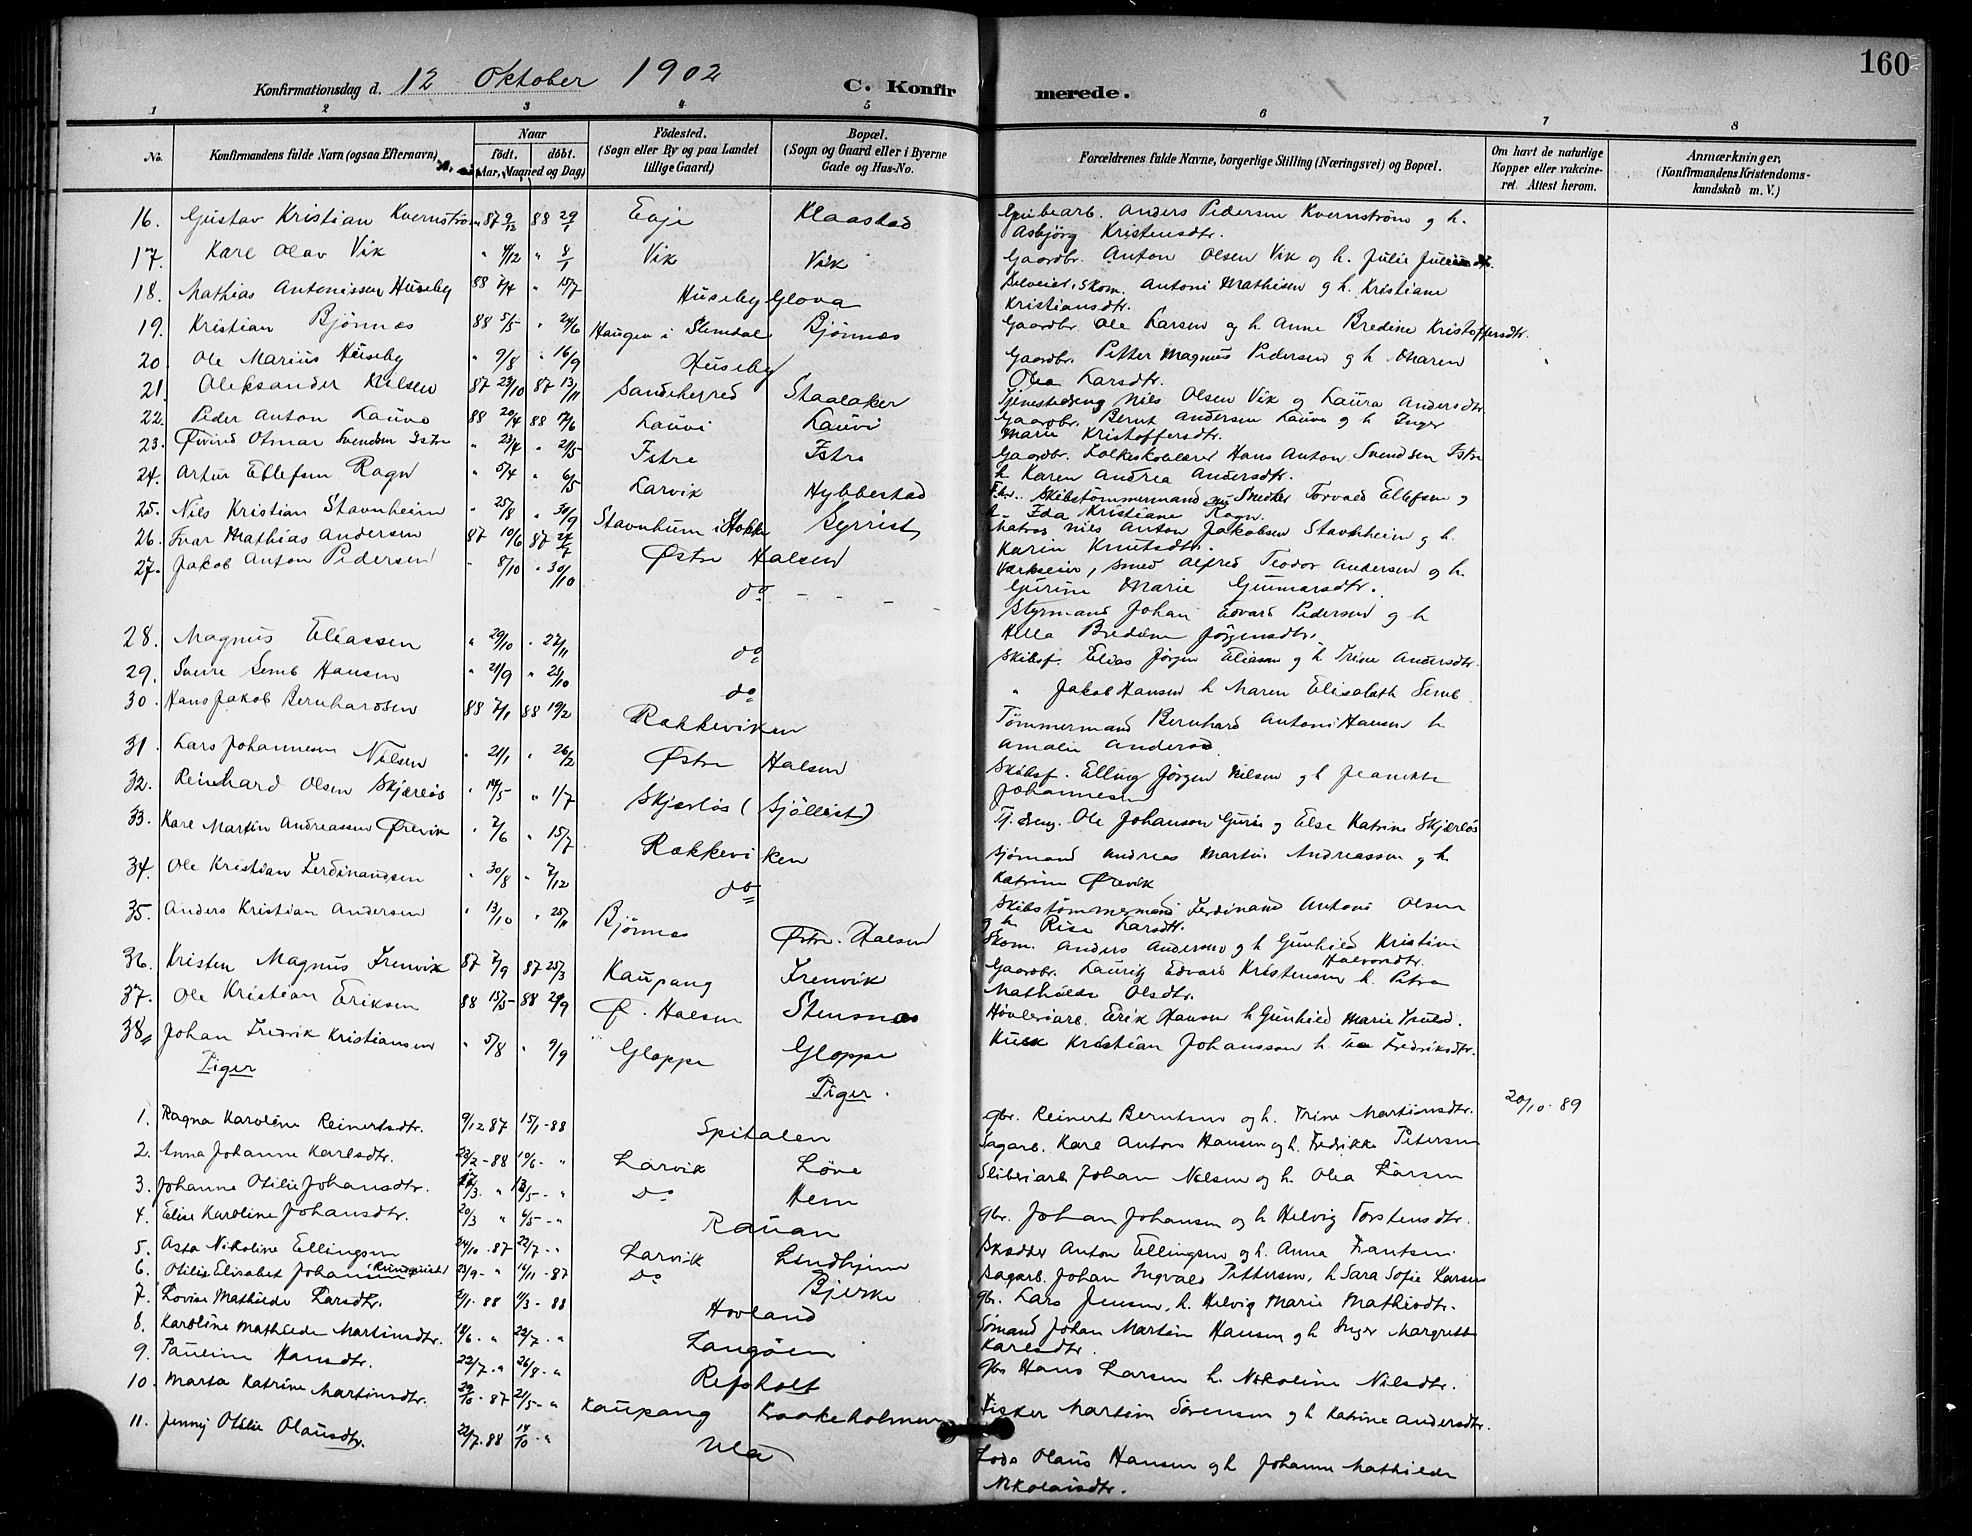 160
Konfirmationsdag d. 12 Oktober 1902 C. Konfirmerede.
1 2 3 4 5 6 7 8
No. Konfirmandens fulde Navn (ogsaa Efternavn) Naar født. døbt. (Aar, Maaned og Dag) Fødested. (Sogn eller By og paa Landet tillige Gaard) Bopæl. (Sogn og Gaard eller i Byerne Gade og Hus-No. Forældrenes fulde Navne, borgerlige Stilling (Næringsvei) og Bopæl. Om havt de naturlige Kopper eller vakcineret. Attest herom. Anmærkninger. (Konfirmandens Kristendomskundskab m. V.)
16. Gustav Kristian Kvernstrøm 87 9/12 88 29/1 Eoje Klaastad Anders Pedersen Kvernstrøm og h.
Asbjörg Kristensdtr.
17. Karl Olav Vik " 4/12 " 8/1 Vik Vik Gaardbr. Anton Olsen Vik og h. Julie
18. Mathias Antonissen Huseby 88 7/4 " 15/7 Huseby Glova Selveier, Skom. Antoni Mathisen og h. Kristiane
Kristiansdtr.
19. Kristian Bjönnes 88 5/5 " 24/6 Haugen i Slemdal Bjönnes Gaardbr. Ole Larsen og h. Anne Bredine Kristoffersdtr.
20. Ole Marius Huseby " 9/8 " 16/9 Huseby Gaardbr. Petter Magnus Pedersen og h. Maren
Olea Larsdtr.
21. Aleksander Nilsen 87 29/10 87 13/11 Sandeherred Staalaker Tjenestedreng Nils Olsen Vik og Laura Andersdtr.
22. Peder Anton Lauve 88 20/4 88 17/6 Lauvi Lauvi Gaardbr. Bernt Andersen Lauve og h Inger
Marie Kristoffersdtr.
23. Øivind Otmar Svendsen Istre " 23/4 " 21/5 Istre Istre Gaardbr. Folkeskolelærer Hans Anton Svendsen Istre
h Karen Andrea Andersdtr.
24. Artur Ellefsen Ragn " 5/4 " 6/5 Larvik Hybbestad Skibstömmermand nu Snedker Torvald Ellefsen og
h. Ida Kristiane Ragn.
25. Nils Kristian Stavnheim " 25/8 " 30/9 Stavnhum i Stokke Syrrist Matros Nils Anton Jakobsen Stavnheim og h.
Karin Knutsdtr.
26. Ivar Mathias Andersen 87 10/6 87 24/7 Østre Halsen Værkseier, Smed Alfred Teodor Andersen og h.
Gurine Marie Gunnarsdtr.
27. Jakob Anton Pedersen " 8/10 " 30/10 do - - - - Styrmand Johan Edvard Pedersen og h
Bredine Jörgensdtr.
28. Magnus Eliassen " 29/10 " 27/11 do Skibsf. Elias Jörgen Eliasen og h Trine Andersdtr.
29. Sverre Semb Hansen " 21/9 " 23/10 do " Jakob Hansen h Maren Elisabeth Semb
30. Hans Jakob Bernhardsen 88 7/1 88 19/2 Rakkeviken Tömmermand Bernhard Antoni Hansen h
Amalie Andersd.
31. Lars Johannesen Nilsen " 21/1 " 26/2 Østre Halsen Skibsf. Elling Jörgen Nilsen og h Jeanette
Johannesen
32. Reinhard Olsen Skjærløs " 14/5 " 1/7 Skjærløs (Sjöllist) Tj. dreng. Ole Johanson Guri og Else Katrine Skjærløs
33. Karl Martin Andreassen Ørevik " 7/6 " 15/7 Rakkeviken Sjömand Andreas Martin Andreassen og h.
Katrine Ørevik
34. Ole Kristian Ferdinandsen " 30/8 " 7/12 do Skibstömmermand Ferdinand Antoni Olsen
og h Rise Larsdtr.
35. Anders Kristian Andersen " 13/10 " 25/11 Bjönnes Østre Halsen Skom. Anders Andersen og h Gunhild Kristine
Halvorsdtr.
36. Kristen Magnus Frenvik 87 7/9 87 25/3 Kaupang Frenvik Gaardbr. Lauritz Edvard Kristensen h. Petra
Mathilde Olsdtr.
37. Ole Kristian Eriksen 88 15/5 88 29/9 Ø. Halsen Stensnes Høvleriarb. Erik Hansen h Gunhild Marie
38. Johan Fredrik Kristiansen " 5/8 " 9/9 Gloppe Gloppe Kusk Kristian Johansson h. Fredriksdtr.
Piger Piger.
1. Ragna Karoline Reinertsdtr. 9/12 87 15/1-88 Spitalen gbr. Reinert Berntsen og h. Trine Martinsdtr. 20/10-89
2. Anna Johanne Karlsdtr. 23/2-88 10/6- " Larvik Löve Sagarb. Karl Anton Hansen og h. Fredrikke Petersen
3. Johanne Otilie Johansdtr. 17/3. " 13/5- " Do Hem Sliberiarb Johan Nilsen og h. Olea Larsen
4. Elise Karoline Johansdtr. 20/3 " 6/5- " Rauan gbr. Johan Johansen og h Helvig Torstensdtr.
5. Asta Nikoline Ellingsen 24/10-87 22/7- " Larvik Lindhjem Skrædder Anton Ellingsen og h. Anna Frantsen
6. Otilie Elisabet Johansen 23/9- " 14/11-87 Do Bjerke Sagarb. Johan Ingvald Pettersen, h Sara Sofie Larsen
7. Lovise Mathilde Larsdtr. 2/1-88 11/3-88 Hovland gbr. Lars Jensen, h. Helvig Marie Mathisdtr.
8. Karoline Mathilde Martinsdtr. 18/6- " 22/7- " Langöen Sömand Johan Martin Hansen og h Inger Margrethe
Karlsdtr.
9. Pauline Hansdtr. 22/7- " 26/8- " Refsholt gbr Hans Larsen h. Nikoline Nilsdtr.
10. Marta Katrine Martinsdtr. 29/10-87 21/5- " Kaupang Kraakeholmen Fisker Martin Sörensen og h Katrine Andersdtr.
11. Jenny Otilie Olausdtr. 22/7-88 14/10- " Ula Lods Olaus Hansen og h Johanne Mathilde
Nikolaisdtr.